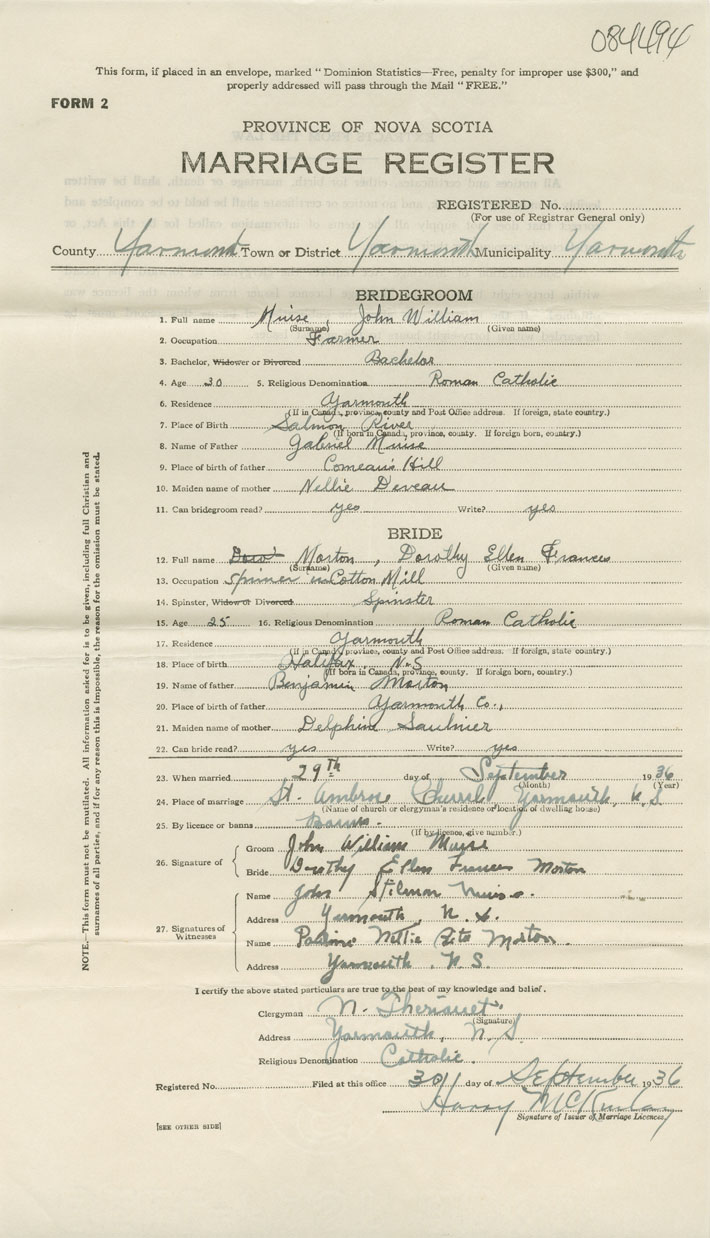 084494
This form, if placed in an envelope, marked "Dominion Statistics—Free, penalty for improper use $300," and
properly addressed will pass through the Mail "FREE."
FORM 2
PROVINCE OF NOVA SCOTIA
MARRIAGE REGISTER
REGISTERED No.
(For use of Registrar General only)
County Yarmouth Town or District Yarmouth Municipality Yarmouth
BRIDEGROOM
1. Full name Muise, John William
(Surname) (Given name)
2. Occupation Farmer
3. Bachelor, Widower or Divorced Bachelor
4. Age 30 5. Religious Denomination Roman Catholic
6. Residence Yarmouth
(If in Canada, province, county and Post Office address. If foreign, state country.)
7. Place of Birth Salmon River
(If born in Canada, province, county. If foreign born, country.)
8. Name of Father Gabriel Muise
9. Place of birth of father Comeau's Hill
10. Maiden name of mother Nellie Deveau
11. Can bridegroom read? yes Write? yes
BRIDE
12. Full name Morton, Dorothy Ellen Frances
(Surname) (Given name)
13. Occupation Spinner in Cotton Mill
14. Spinster, Widow or Divorced Spinster
15. Age 25 16. Religious Denomination Roman Catholic
17. Residence Yarmouth
(If in Canada, province, county and Post Office address. If foreign, state country.)
18. Place of birth Halifax, N.S
(If born in Canada, province, county. If foreign born, country.)
19. Name of father Benjamin Morton
20. Place of birth of father Yarmouth Co.,
21. Maiden name of mother Delphine Saulnier
22. Can bride read? yes Write? yes
23. When married 29th day of September 1936
(Month) (Year)
24. Place of marriage St. Ambrose Church Yarmouth, N.S
(Name of church or clergyman's residence or location of dwelling house)
25. By licence or banns Banns.
(If by licence, give number.)
26. Signature of
Groom John William Muise
Bride Dorothy Ellen Frances Morton
27. Signatures of Witnesses
Name John Stilman Muise.
Address Yarmouth, N.S.
Name Nellie Rita Morton.
Address Yarmouth, N.S.
I certify the above stated particulars are true to the best of my knowledge and belief.
Clergyman N. Theriault
(Signature)
Address Yarmouth, N.S.
Religious Denomination Catholic.
Registered No. Filed at this office 30 day of September 1936
Harry McKinlay
Signature of Issuer of Marriage Licences.
[SEE OTHER SIDE]
NOTE.—This form must not be mutilated. All information asked for is to be given, including full Christian and
surnames of all parties, and if for any reason this is impossible, the reason for the omission must be stated.